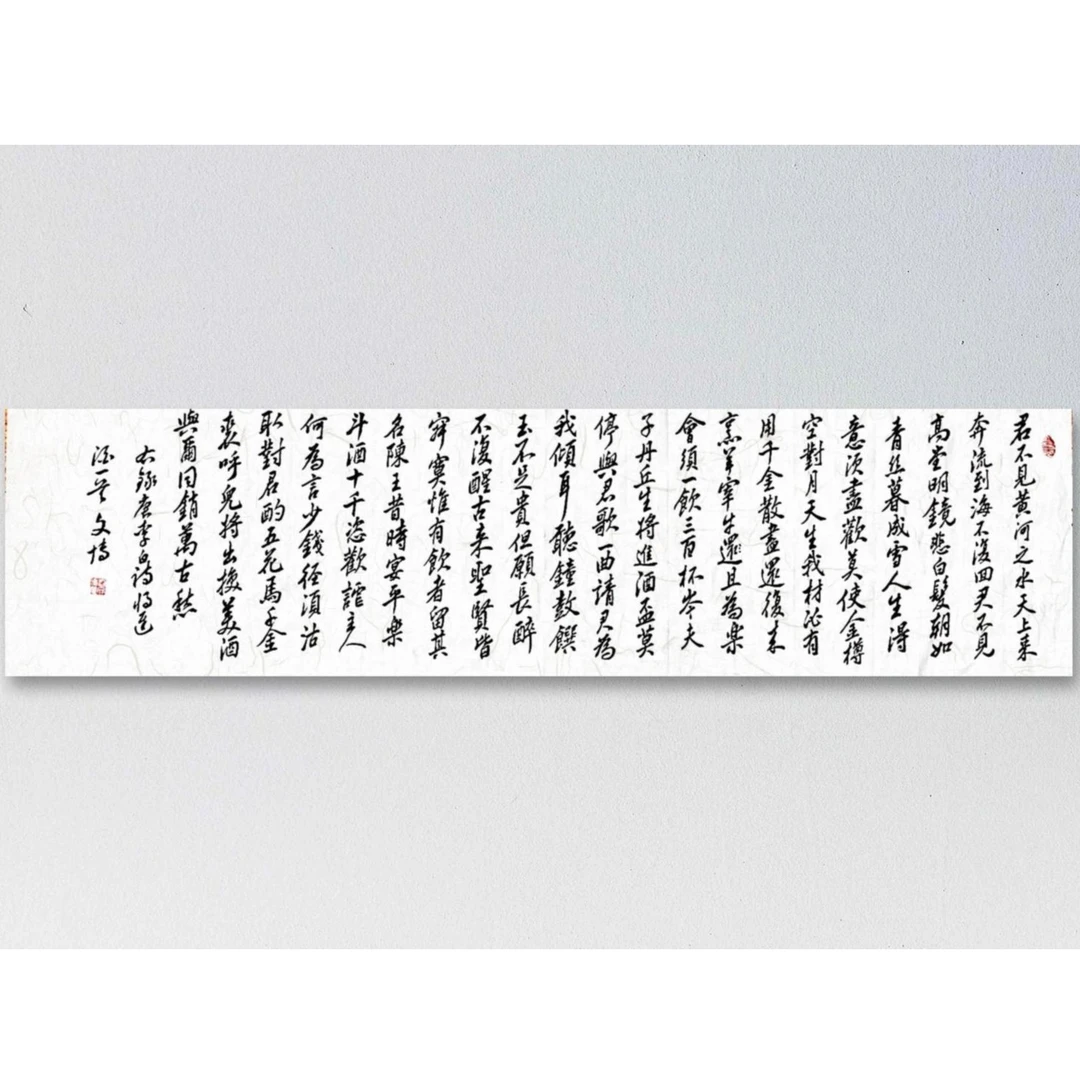 君不見黄河之水天上来
奔流到海不復回君不見
高堂明鏡悲白髮朝如
青丝暮成雪人生得
意须盡歡莫使金樽
空對月天生我材必有
用千金散盡還復来
烹羊宰牛還且為樂
會須一飲三百杯岑夫
子丹丘生将進酒盃莫
停與君歌一曲請君為
我傾耳聽鐘鼓饌
玉不足貴但願長醉
不復醒古来聖賢皆
寂寞惟有飲者留其
名陳王昔時宴平樂
斗酒十千恣歡謔主人
何為言少錢径須沽
取對君酌五花馬千金
裘呼兒将出換美酒
與爾同銷萬古愁
右録唐李白詩将進
酒一首文博